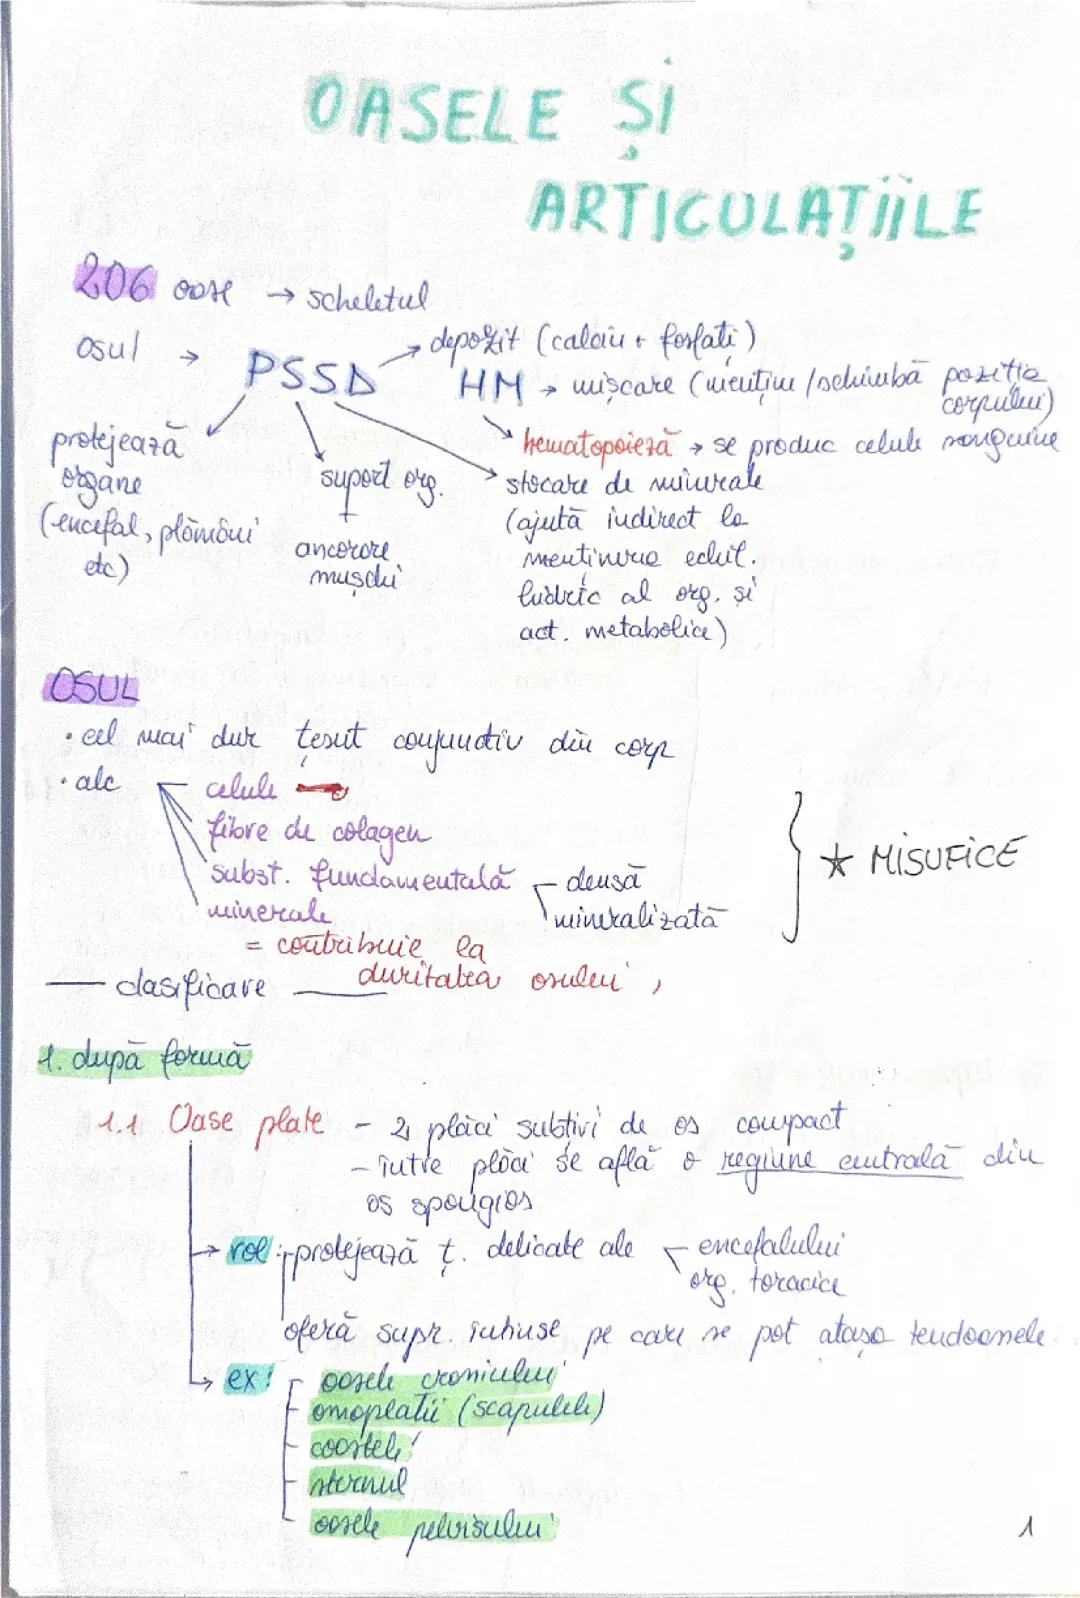 OASELE ȘI
ARTICULAȚIILE
206 oase → scheletul
osul → PSSD HM
depozit (calciu + fosfați)
mișcare (menține/schimbă poziția
corpului)
hematopoieză → se produc celule sanguine
protejează
organe
(encefal, plămâni
etc)
suport org.
+
ancorare
mușchi
stocare de minerale
(ajută indirect la
menținerea echil.
hidric al org. și
act. metabolice)
OSUL
• cel mai dur țesut conjunctiv din corp
• alc
celule
fibre de colagen
subst. fundamentală
densă
mineralizată
minerale
= contribuie la
duritatea osului
★ MISUFICE
— clasificare —
1. după formă
1.1 Oase plate - 2 plăci subțiri de os compact
- între plăci se află o regiune centrală din
os spongios
→ rol: protejează ț. delicate ale
encefalului
org. toracice
oferă supr. întinse pe care se pot atașa tendoanele
→ ex:
oasele craniului
omoplații (scapulele)
coastele
sternul
oasele pelvisului
1